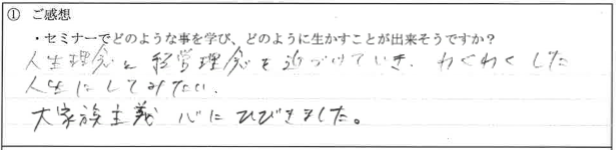 ① ご感想
・セミナーでどのような事を学び、どのように生かすことが出来そうですか?
人生理念と経営理念を近づけていき、わくわくした
人生にしてみたい.
大家族主義 心にひびきました。